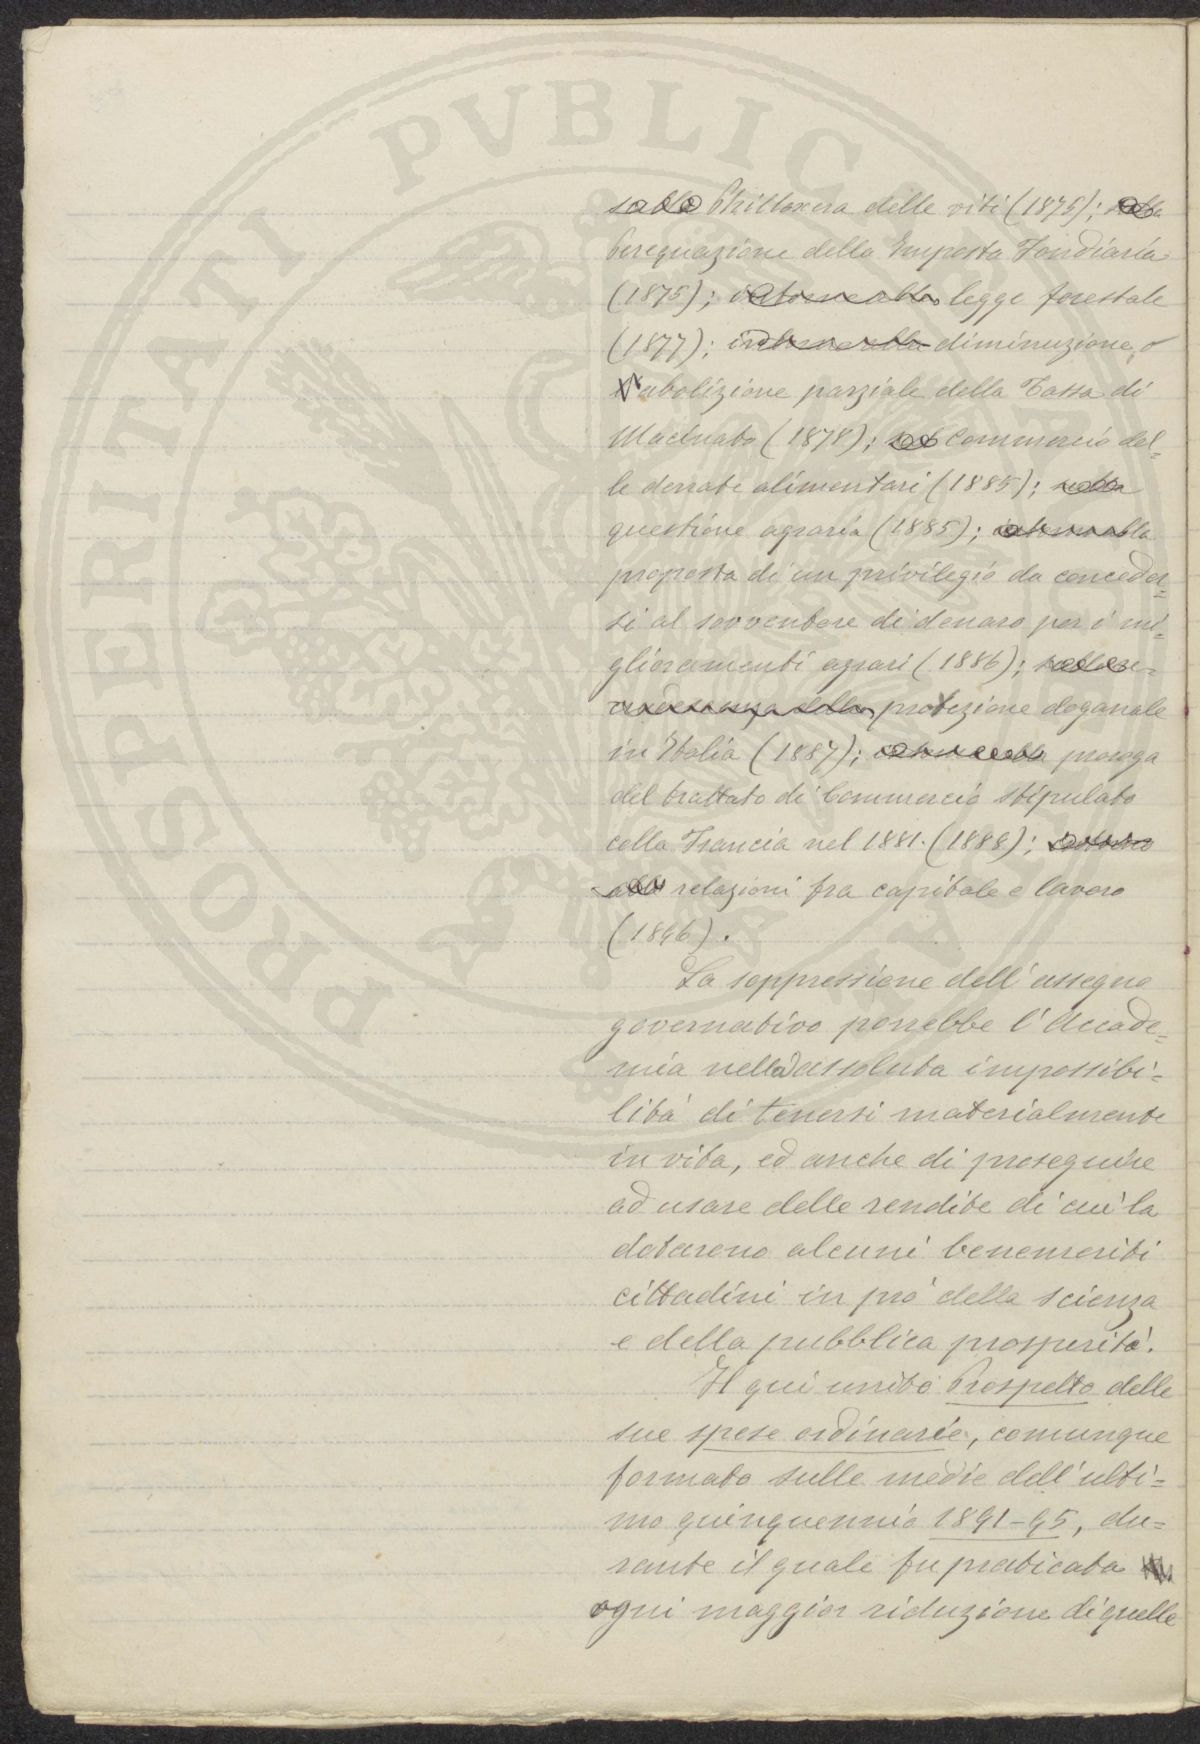 PROSPERITATI PVBLIC
sulla Phillossera delle viti (1875); sulla
Perequazione della Imposta Fondiaria
(1875); intorno alla legge forestale
(1877); intorno alla diminuzione, o
abolizione parziale della Tassa di
Macinato (1878); sul Commercio del=
le derrate alimentari (1885); sulla
questione agraria (1885); intorno alla
proposta di un privilegio da conceder=
si al sovventore di denaro per i mi=
glioramenti agrari (1886); sulla
della protezione doganale
in Italia (1887); intorno alla proroga
del trattato di Commercio stipulato
colla Francia nel 1881. (1888); intorno
alle relazioni fra capitale e lavoro
(1896).
La soppressione dell'assegno
governativo porrebbe l'Accade=
mia nella assoluta impossibi=
lità di tenersi materialmente
in vita, ed anche di proseguire
ad usare delle rendite di cui la
dotarono alcuni benemeriti
cittadini in prò della scienza
e della pubblica prosperità.
Il qui unito Prospetto delle
sue spese ordinarie, comunque
formato sulle medie dell'ulti=
mo quinquennio 1891-95, du=
rante il quale fu praticata
ogni maggior riduzione di quelle